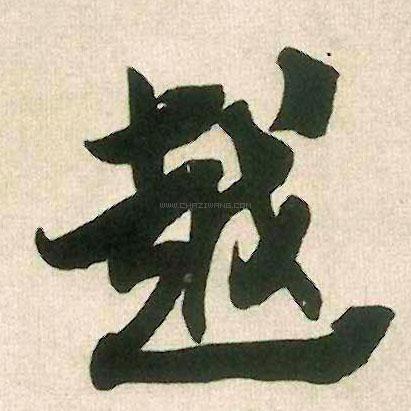 越
WWW.CHAZIWANG.COM